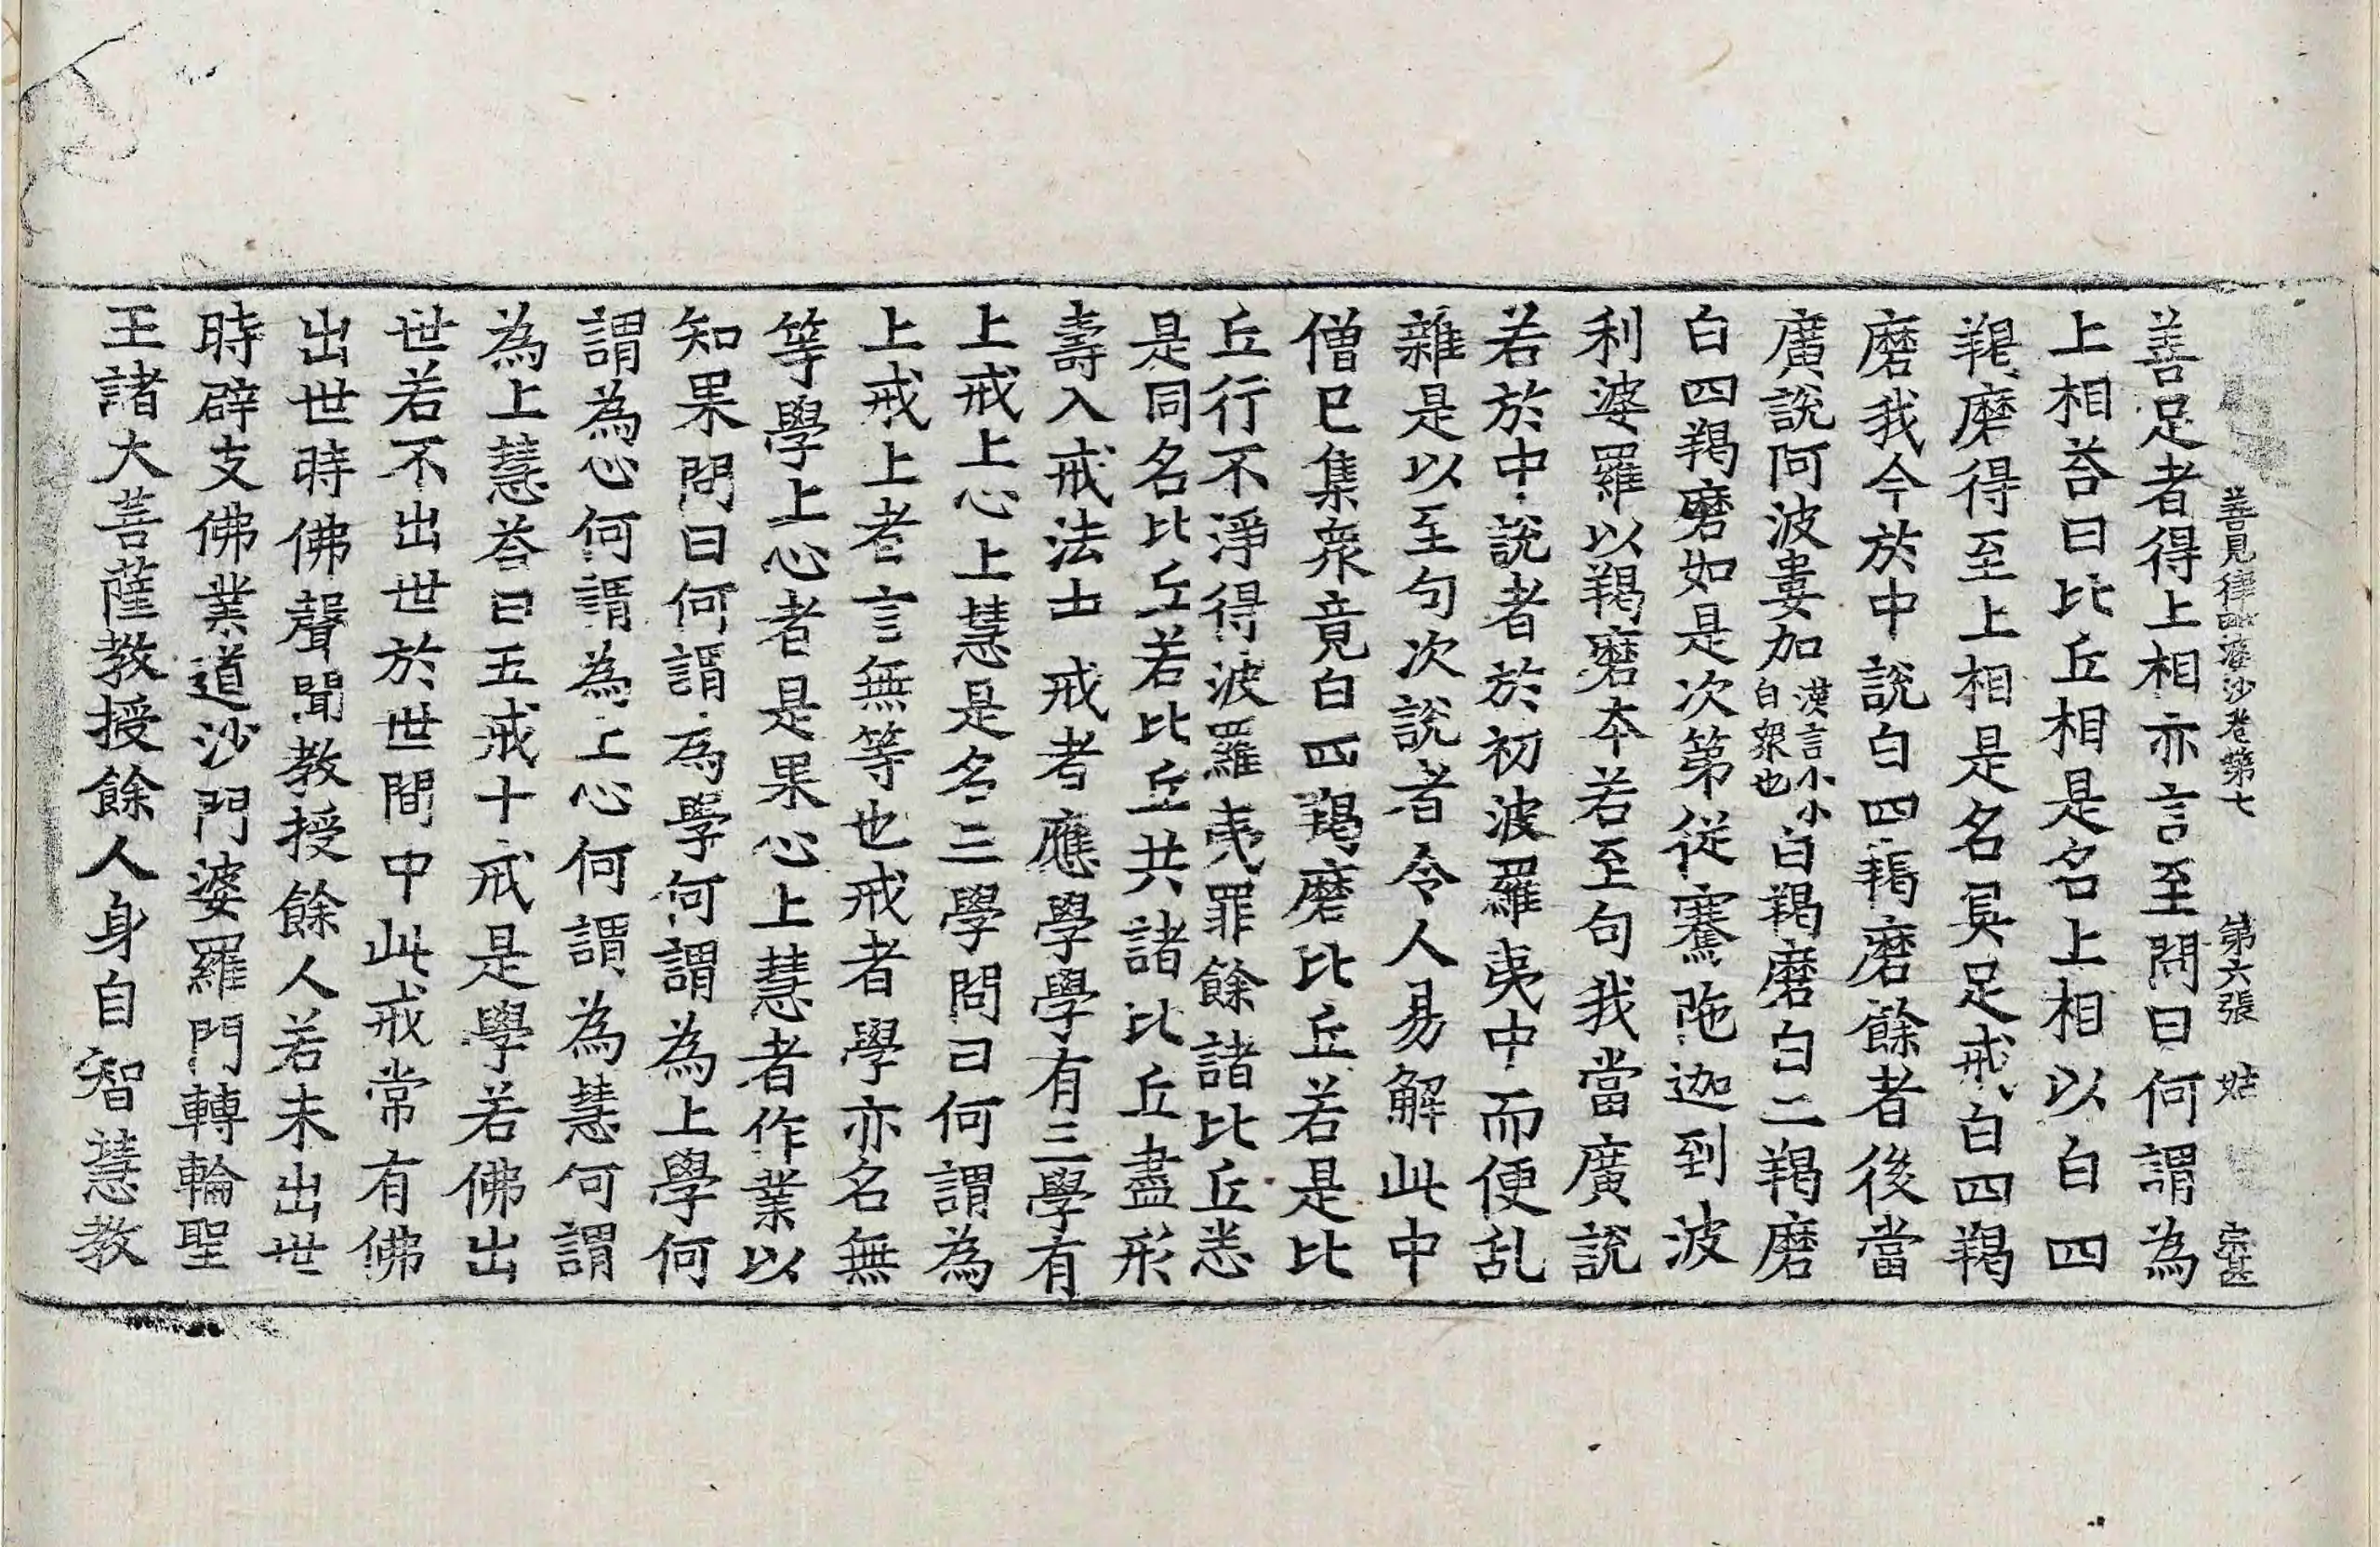 善見律毗婆沙卷第七 第六張 姑
善足者得上相亦言至問曰何謂為
上相荅曰比丘相是名上相以白四
羯磨得至上相是名具足戒白四羯
磨我今於中說白四羯磨餘者後當
廣說阿波婁加漢言小小白眾也白羯磨白二羯磨
白四羯磨如是次第從騫陁迦到波
利婆羅以羯磨本若至句我當廣說
若於中說者於初波羅夷中而便乱
雜是以至句次說者令人易解此中
僧已集衆竟白四羯磨比丘若是比
丘行不淨得波羅夷罪餘諸比丘悉
是同名比丘若比丘共諸比丘盡形
壽入戒法士 戒者應學學有三學有
上戒上心上慧是名三學問曰何謂為
上戒上者言無等也戒者學亦名無
等學上心者是果心上慧者作業以
知果問曰何謂為學何謂為上學何
謂為心何謂為上心何謂為慧何謂
為上慧荅曰五戒十戒是學若佛出
世若不出世於世間中此戒常有佛
出世時佛聲聞教授餘人若未出世
時辟支佛業道沙門婆羅門轉輪聖
王諸大菩薩教授餘人身自智慧教